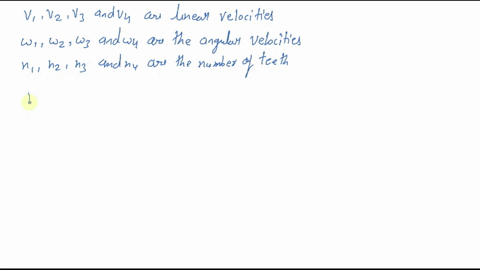 V₁, V₂, V₃ and V₄ are linear velocities
ω₁, ω₂, ω₃ and ω₄ are the angular velocities
n₁, n₂, n₃ and n₄ are the number of teeth